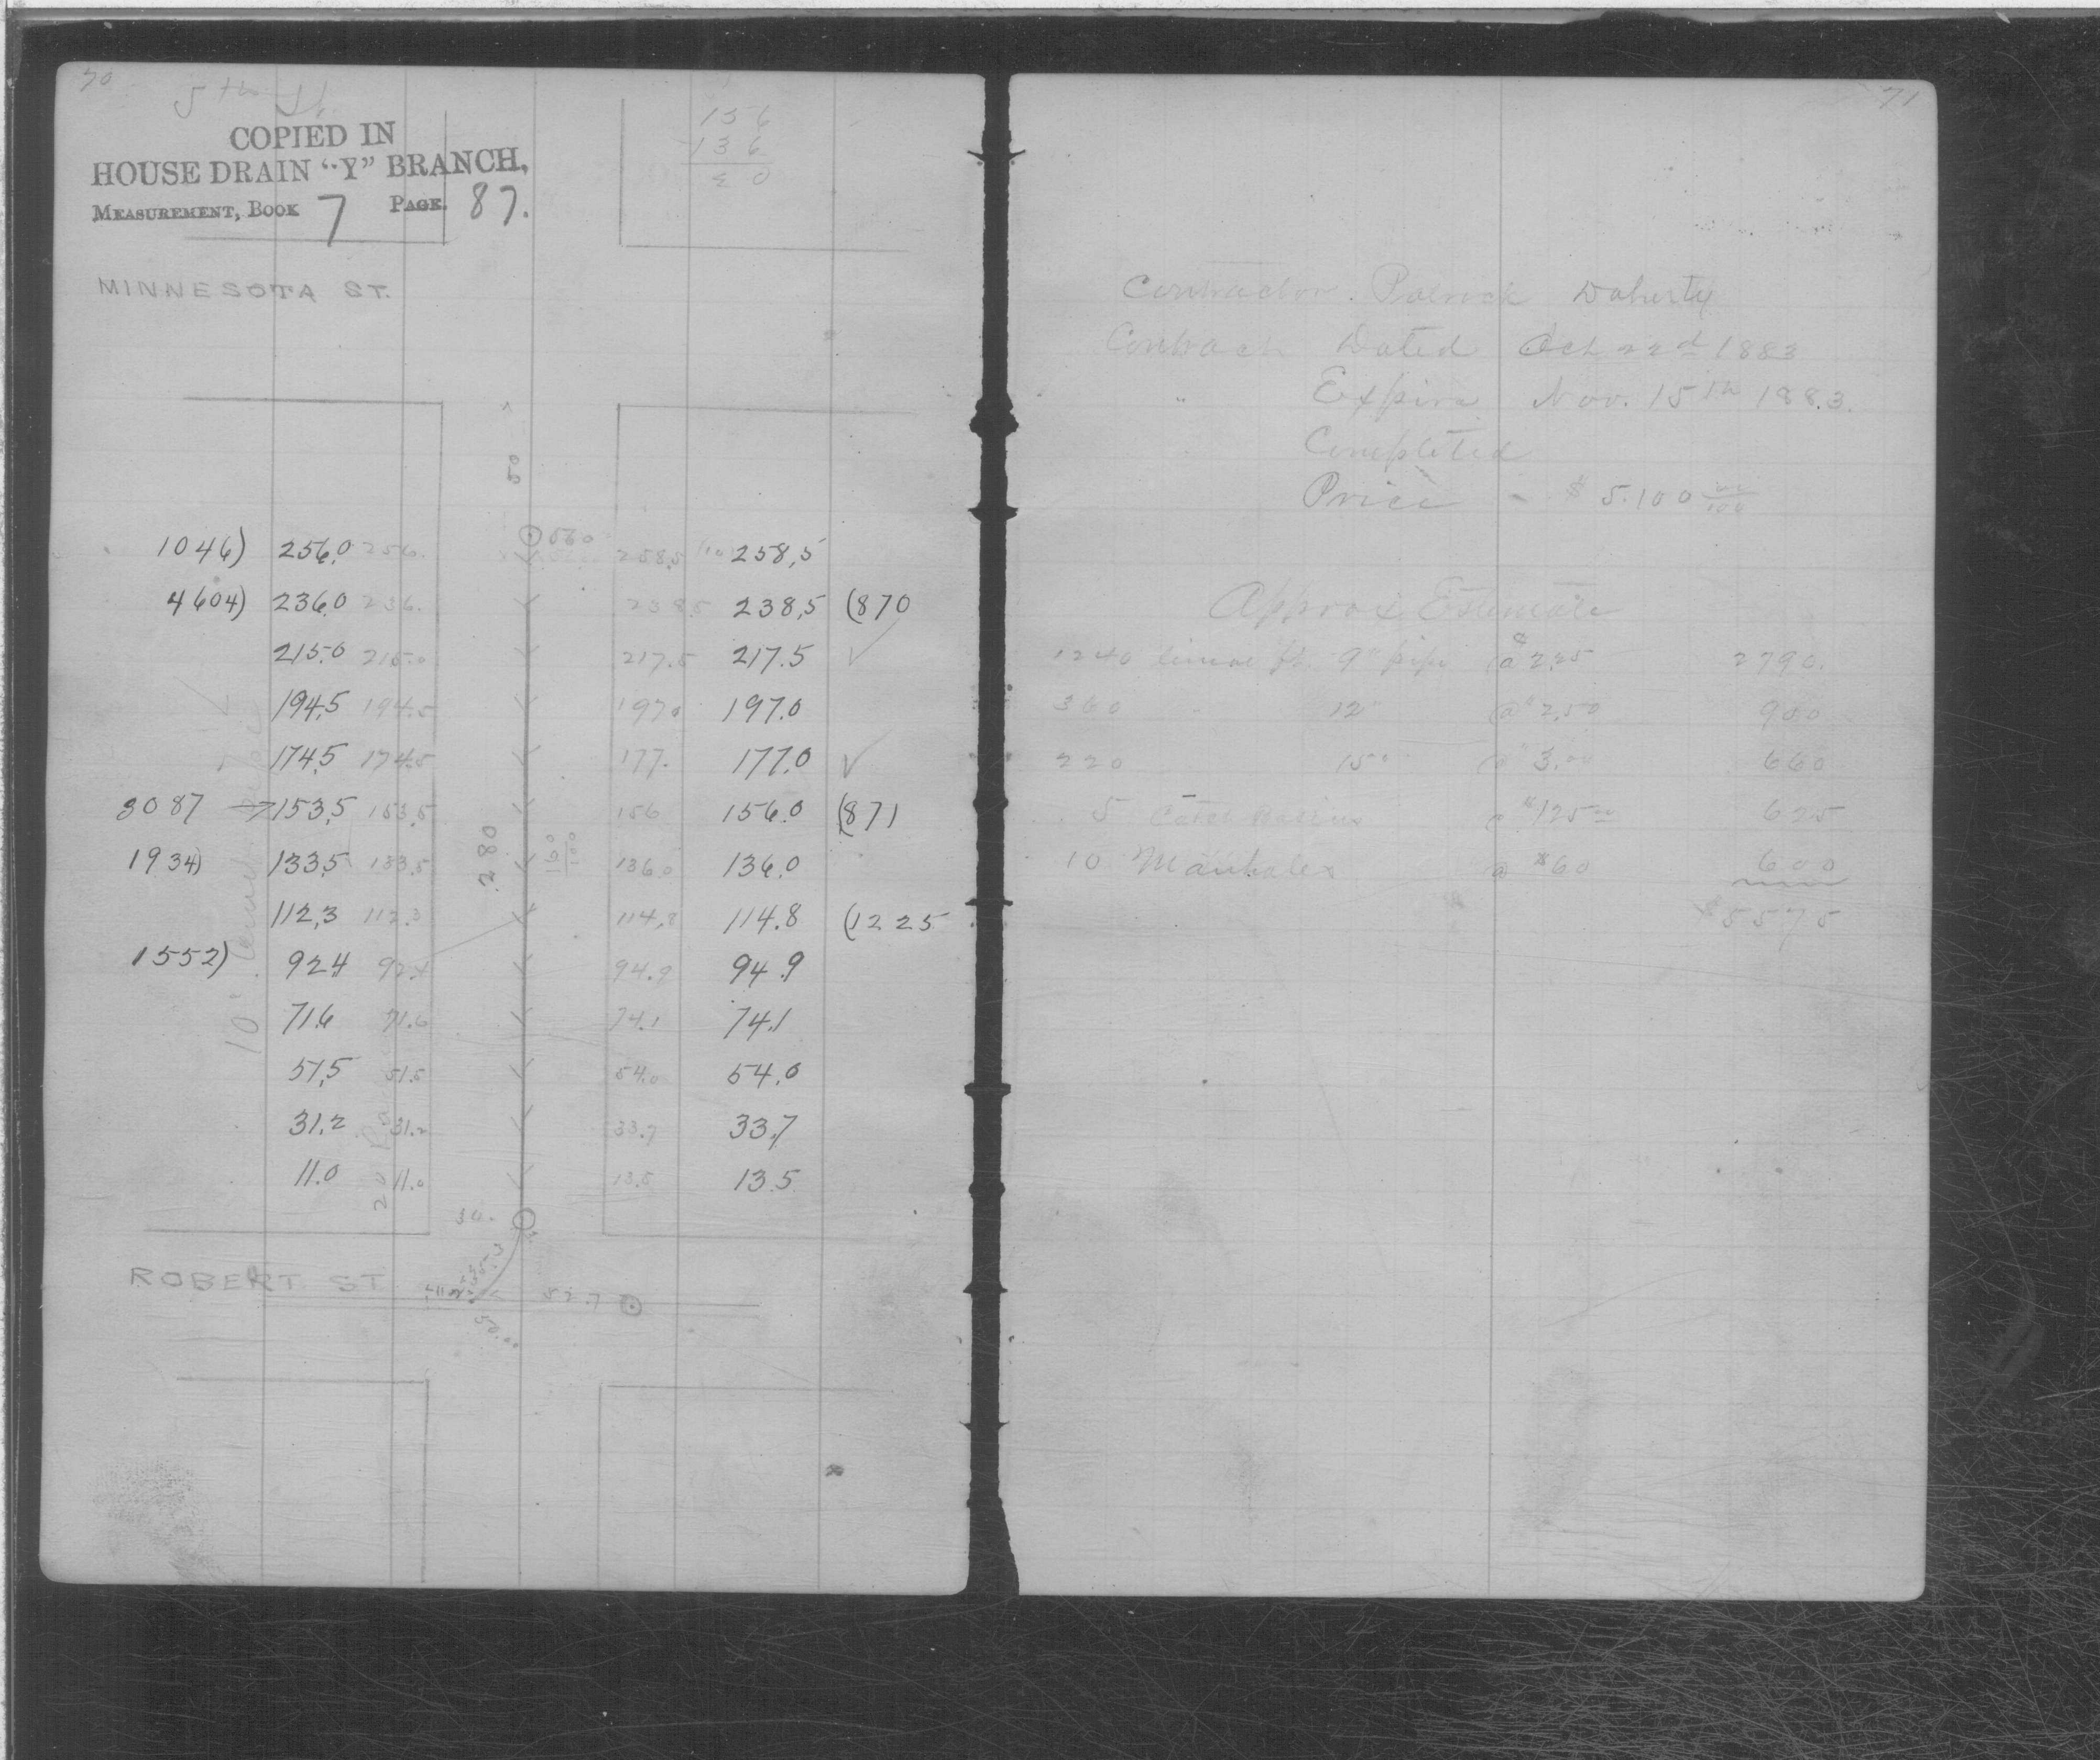 70
5th St.
COPIED IN
HOUSE DRAIN "Y" BRANCH,
MEASUREMENT, BOOK 7 PAGE. 87.
156
136
MINNESOTA ST.
50
560
1046) 256.0 256. 258.5 258,5
4604) 236.0 236. 238.5 238,5 (870
215.0 215.0 217.5 217.5
194.5 194.5 197.0 197.0
174.5 174.5 177. 177.0
3087 153,5 153.5 156 156.0 (871
1934) 133.5 133.5 136.0 136.0
280
112,3 112.3 114.8 114.8 (1225
1552) 92.4 92.4 94.9 94.9
71.6 71.6 74.1 74.1
51,5 51.5 54.0 54.0
31.2 31.2 33.7 33.7
11.0 11.0 13.5 13.5
ROBERT ST
71
Contractor Patrick Doherty
Contract Dated Oct 22d 1883
" Expire Nov. 15th 1883.
Completed
Price - $ 5.100
Approx Estimate
1240 lineal ft. 9" pipe @ $2.25 2790.
360 " 12" @ $2.50 900
220 15" @ $3.00 660
5 Catch Basins @ $125 625
10 Manholes @ $60 600
$5575